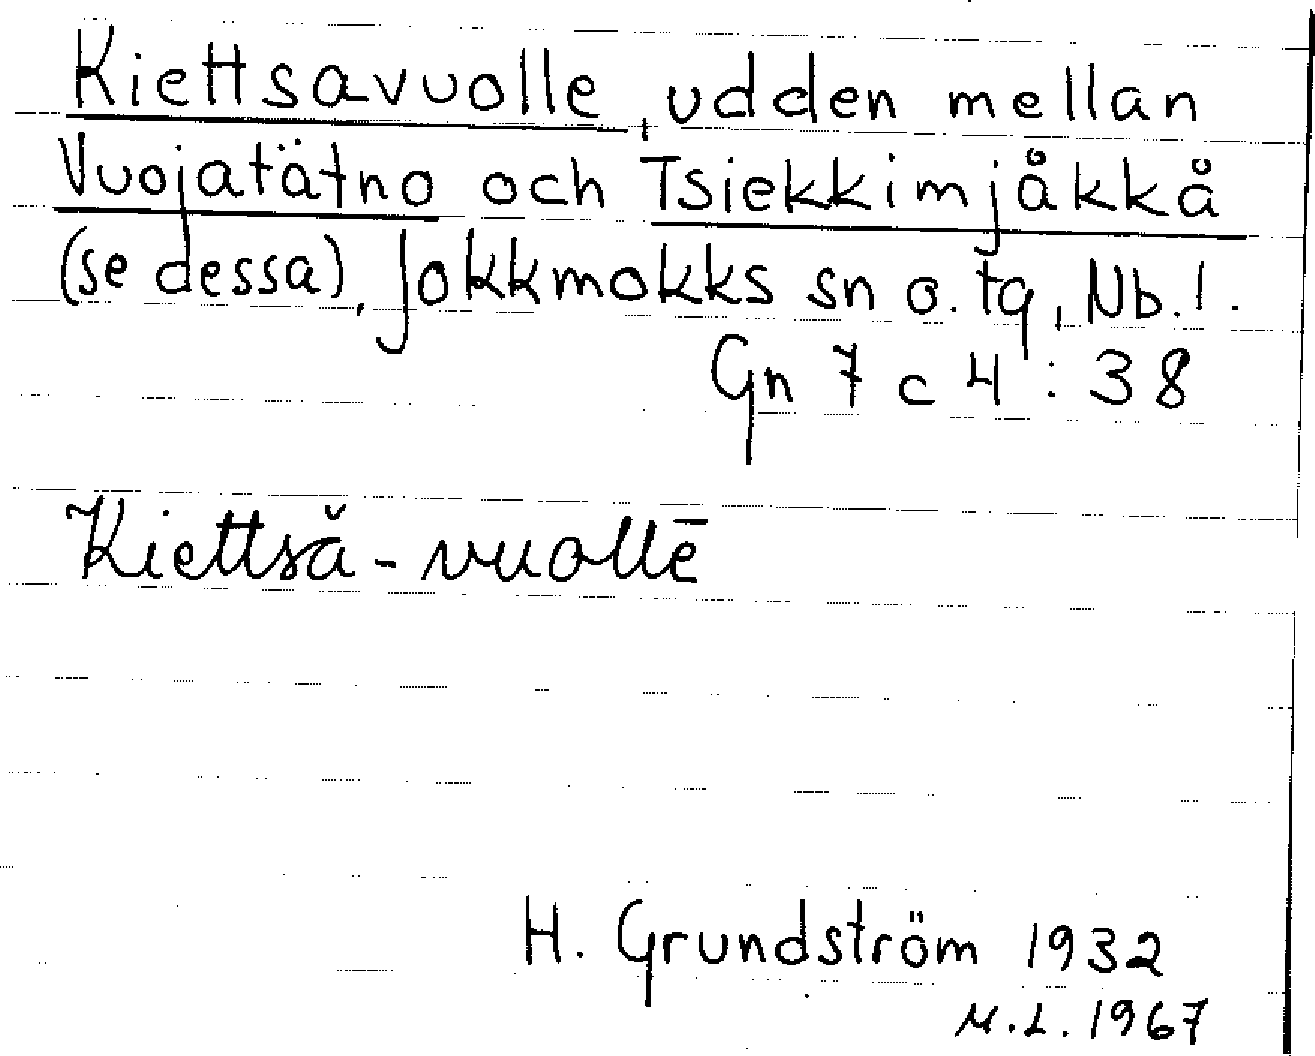 Kiettsavuolle, udden mellan
Vuojatätno och Tsiekkimjåkkå
(se dessa), Jokkmokks sn o. tg, Nb.l.
Gn 7 c 4 : 38
Kiettsă-vuollē
H. Grundström 1932
M.L. 1967